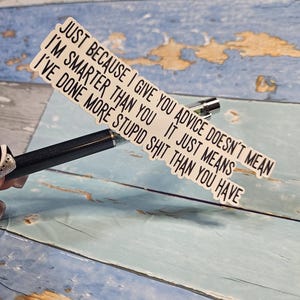 JUST BECAUSE I GIVE YOU ADVICE DOESN'T MEAN
I'M SMARTER THAN YOU IT JUST MEANS
I'VE DONE MORE STUPID SHIT THAN YOU HAVE